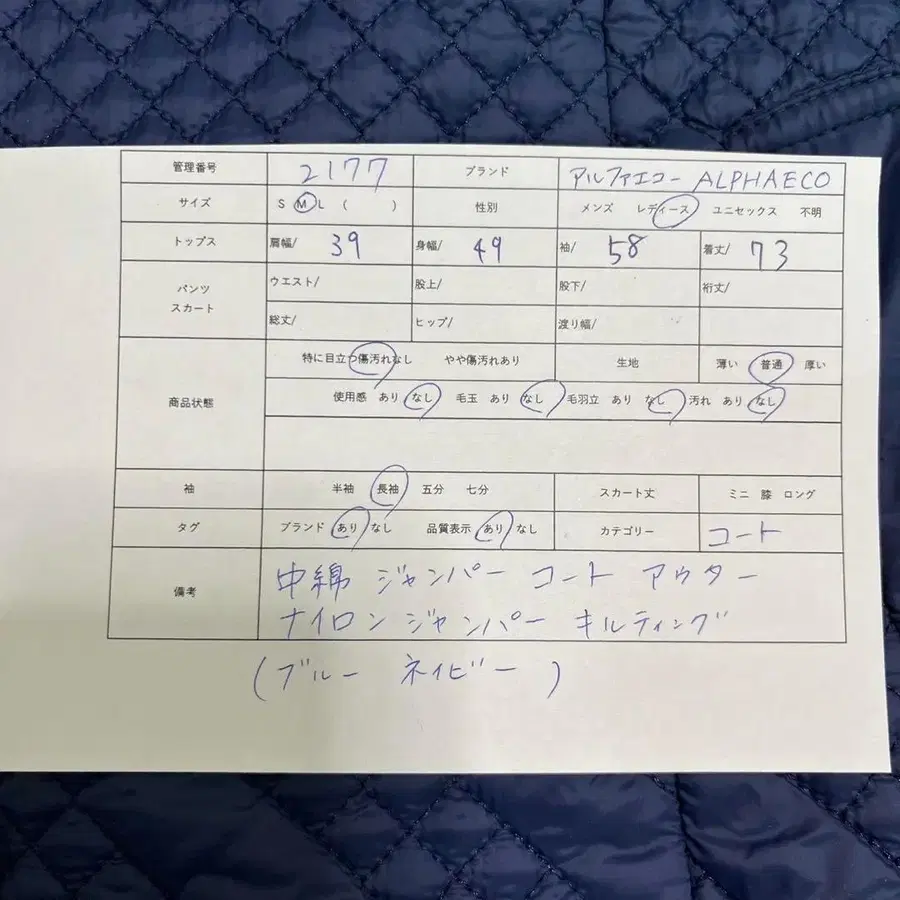 管理番号 2177 ブランド アルファエコー ALPHAECO
サイズ S M L ( ) 性別 メンズ レディース ユニセックス 不明
トップス 肩幅/ 39 身幅/ 49 袖/ 58 着丈/ 73
パンツ スカート ウエスト/ 股上/ 股下/ 裄丈/
総丈/ ヒップ/ 渡り幅/
商品状態 特に目立つ傷汚れなし やや傷汚れあり 生地 薄い 普通 厚い
使用感 あり なし 毛玉 あり なし 毛羽立 あり なし 汚れ あり なし
袖 半袖 長袖 五分 七分 スカート丈 ミニ 膝 ロング
タグ ブランド あり なし 品質表示 あり なし カテゴリー コート
備考 中綿 ジャンパー コート アウター
ナイロンジャンパー キルティング
(ブルー ネイビー )